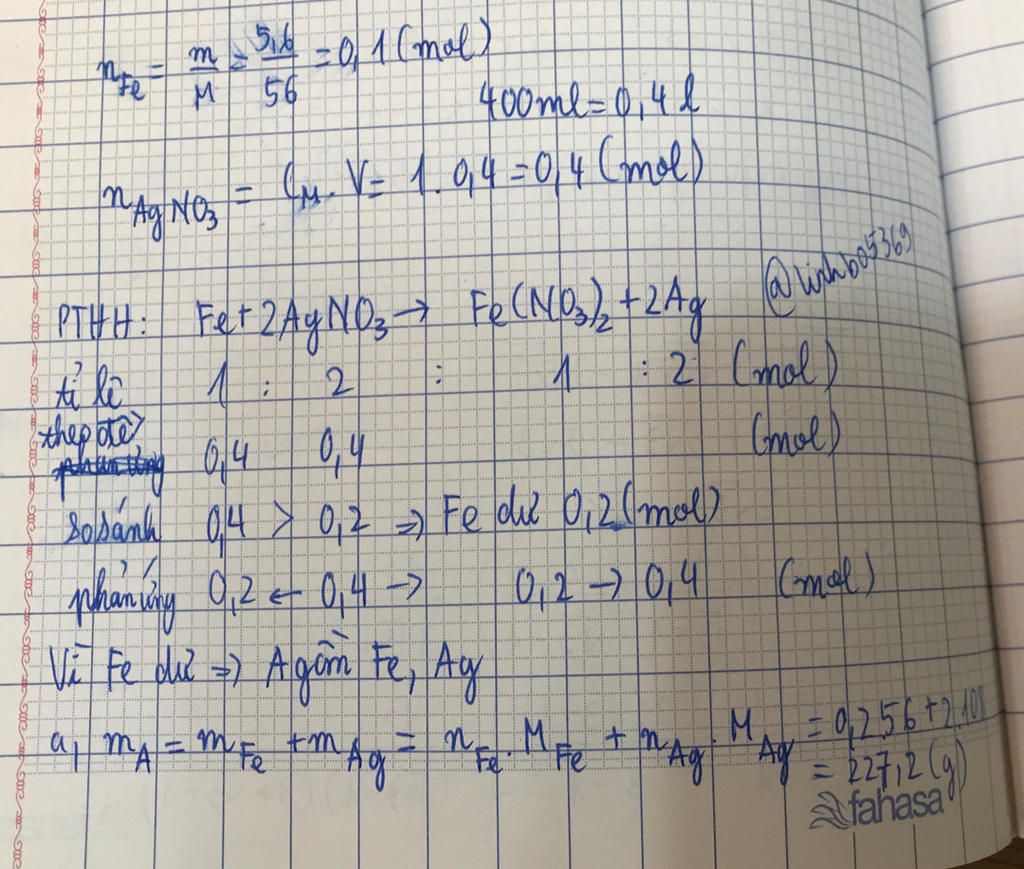 n_Fe = m/M = 5,6/56 = 0,1 (mol)
400ml = 0,4 l
n_AgNO3 = C_M . V = 1 . 0,4 = 0,4 (mol)
@linhb05369
PTHH: Fe + 2AgNO3 → Fe(NO3)2 + 2Ag
tỉ lệ 1 : 2 : 1 : 2 (mol)
theo đề 0,4 0,4 (mol)
so sánh 0,4 > 0,2 => Fe dư 0,2 (mol)
phản ứng 0,2 ← 0,4 → 0,2 → 0,4 (mol)
Vì Fe dư => A gồm Fe, Ag
a, m_A = m_Fe + m_Ag = n_Fe . M_Fe + n_Ag . M_Ag = 0,2.56 + 2.108
= 227,2 (g)
fahasa